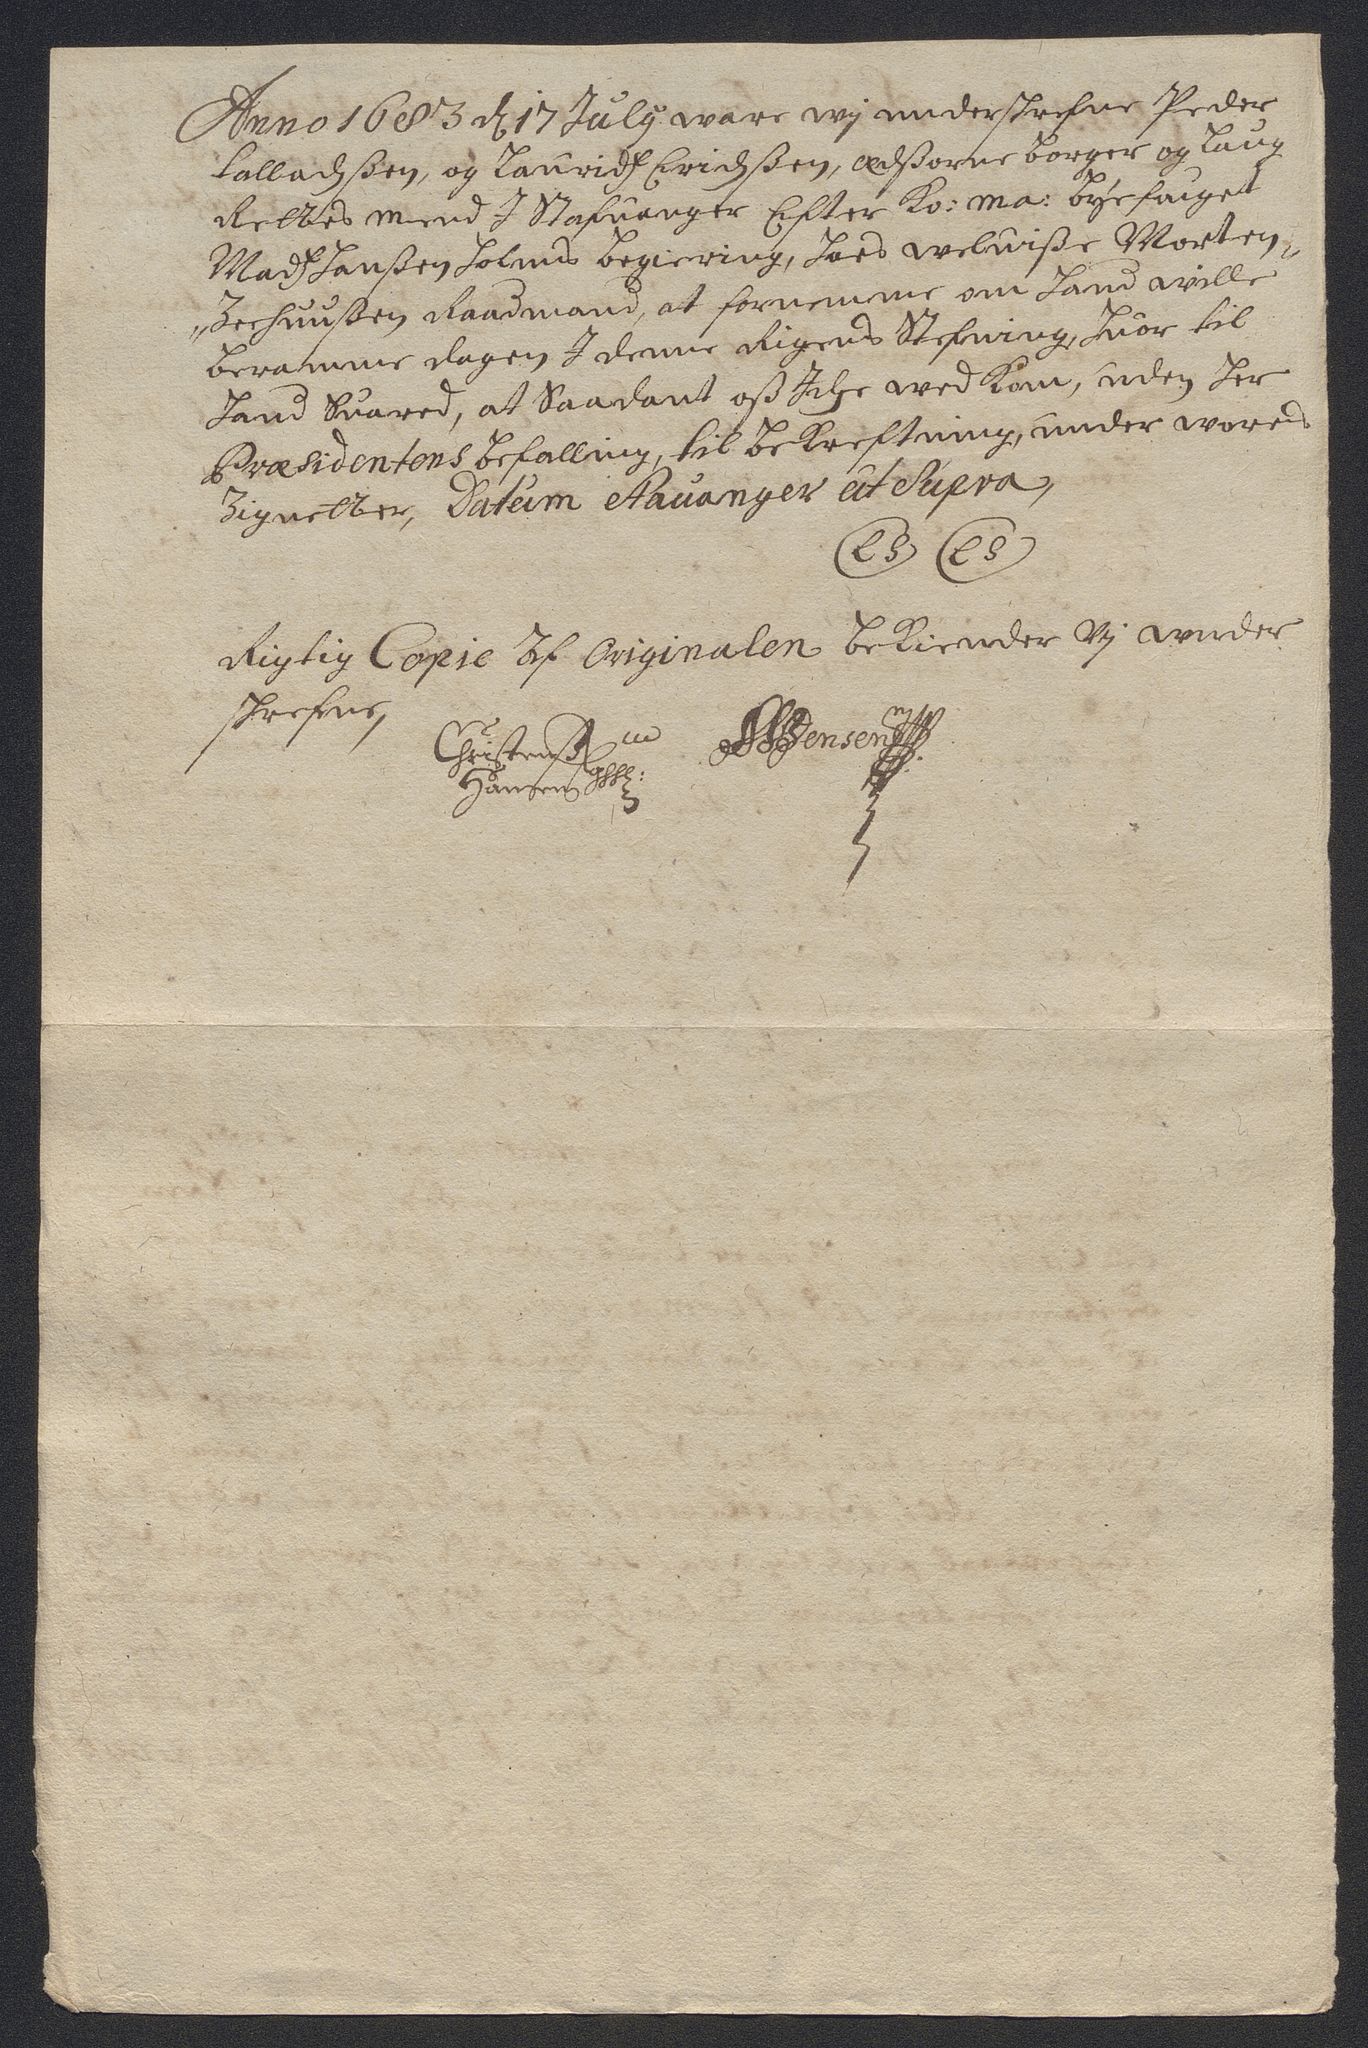 Anno 1683 d 17 July ware wij underschrefne Peder
Calladsßen, og Lauridz Erichsßen, ædsorne borger og Laug
Rettes mend I Stafuanger Efter Ko: ma: byefauget
Madz Hanßen Holms begiering, hoes welwiße Morten
Zeehuußen Raadmand, at fornemme om hand wille
beramme dagen I denne Rigens Stefning, huor til
hand Suared, at Saadant oß Iche wed Kom, uden her
Præsidentens befalling, til bekreftning, under worres
Zignetter, Datum Stauanger ut Supra,
LS LS
Rigtig Copie af Originalen bekiender Vj under
schrefne,
Christen Jensen
Hansen